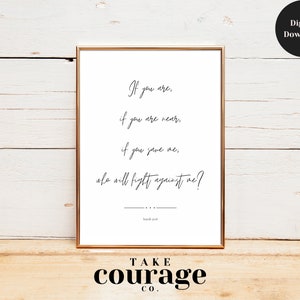 Digi
Down
If you are,
if you are near,
if you save me,
who will fight against me?
TAKE
courage
CO.